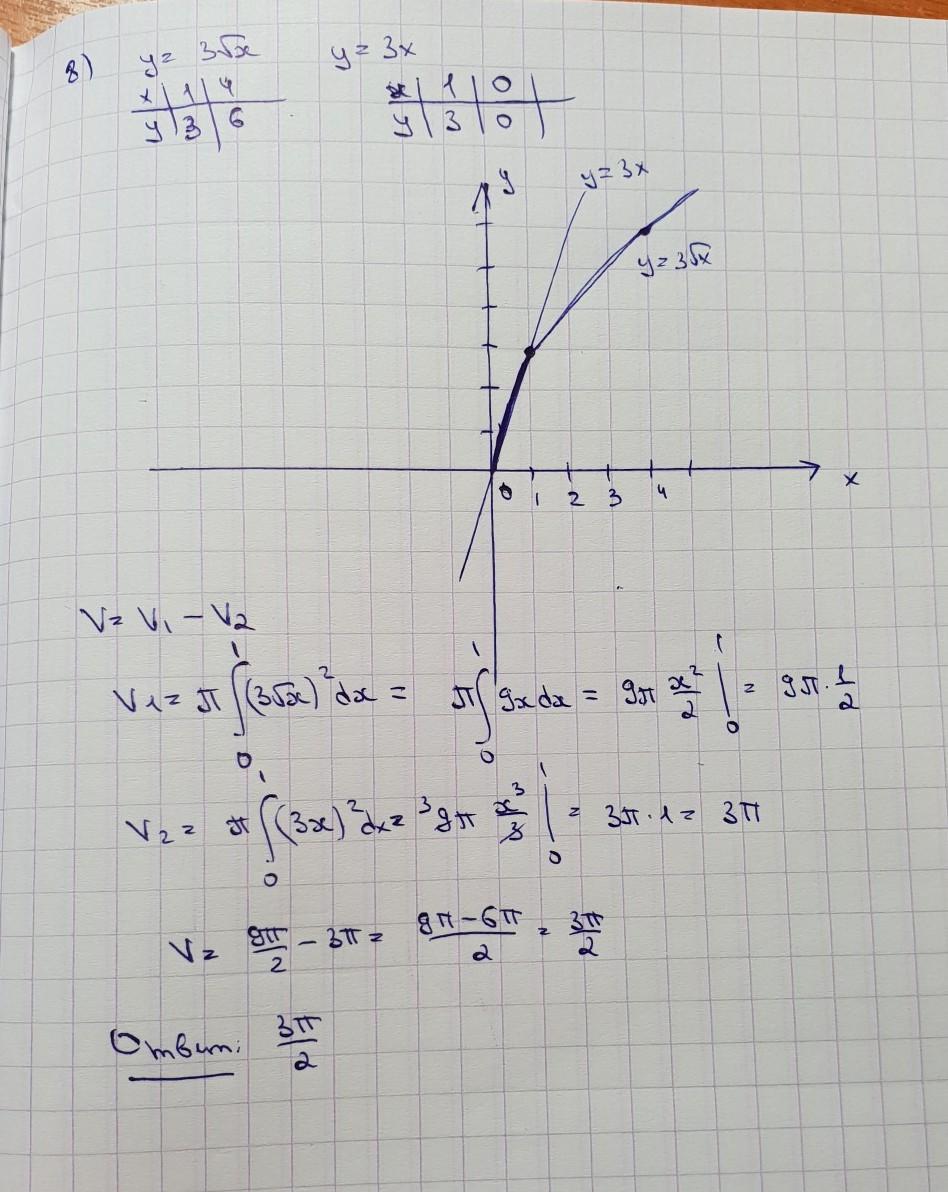 8) y = 3√x y = 3x
x | 1 | 4 x | 1 | 0 |
y | 3 | 6 y | 3 | 0 |
y
y = 3x
y = 3√x
0 1 2 3 4 x
V = V₁ − V₂
V₁ = π ∫₀¹ (3√x)² dx = π ∫₀¹ 9x dx = 9π x²/2 |₀¹ = 9π · 1/2
V₂ = π ∫₀¹ (3x)² dx = ³9π x³/3 |₀¹ = 3π · 1 = 3π
V = 9π/2 − 3π = (9π − 6π)/2 = 3π/2
Ответ: 3π/2